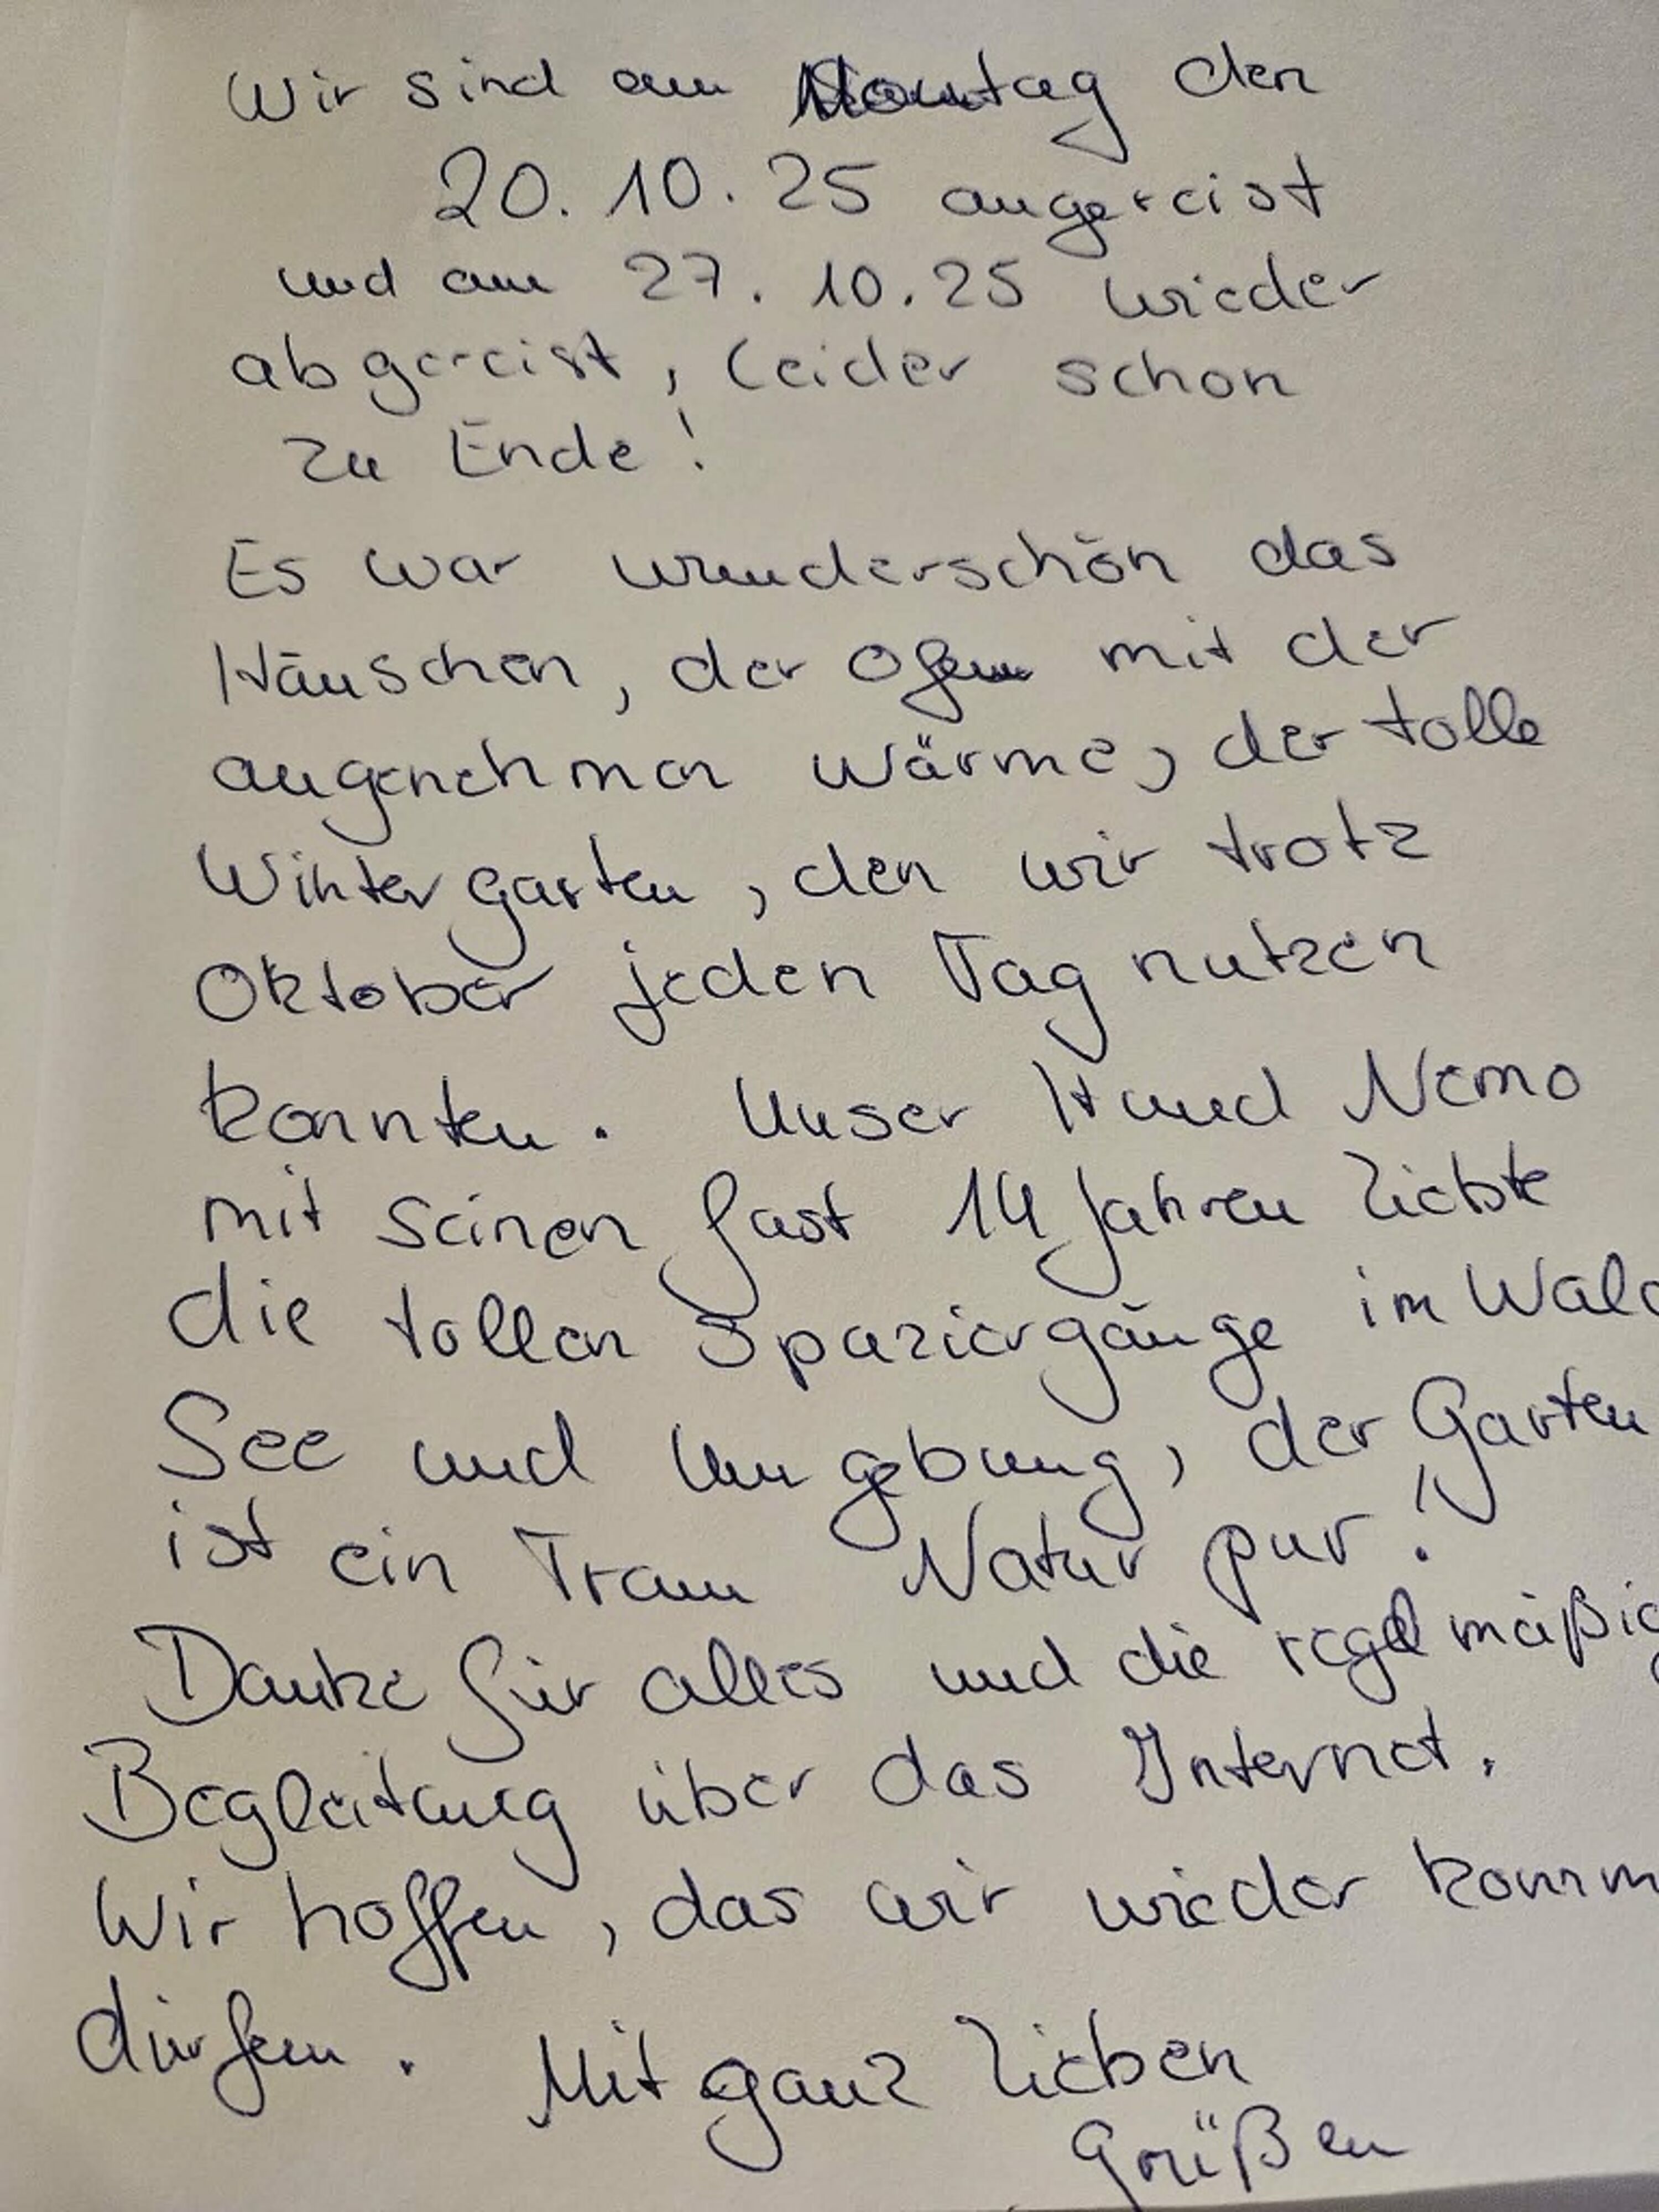 Wir sind am Montag den
20.10.25 angereist
und am 27.10.25 wieder
abgereist, leider schon
zu Ende!
Es war wunderschön das
Häuschen, der Ofen mit der
angenehmen Wärme, der tolle
Wintergarten, den wir trotz
Oktober jeden Tag nutzen
konnten. Unser Hund Nemo
mit seinen fast 14 Jahren liebte
die tollen Spaziergänge im Wald
See und Umgebung, der Garten
ist ein Traum Natur pur!
Danke für alles und die regelmäßig
Begleitung über das Internet.
Wir hoffen, das wir wieder komm
dürfen. Mit ganz lieben
Grüßen